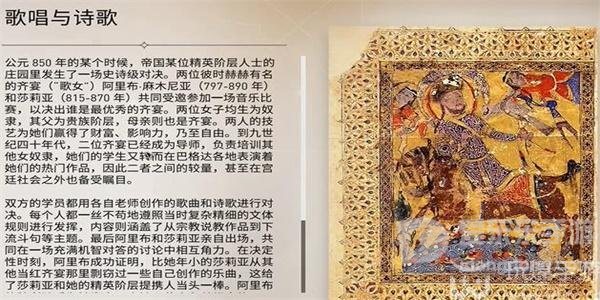 歌唱与诗歌
公元 850 年的某个时候，帝国某位精英阶层人士的
庄园里发生了一场史诗级对决。两位彼时赫赫有名
的齐宴（“歌女”）阿里布·麻木尼亚（797-890 年）
和莎莉亚（815-870 年）共同受邀参加一场音乐比
赛，以决出谁是最优秀的齐宴。两位女子均生为奴
隶，其父为贵族阶层，母亲则也是齐宴。两人的技
艺为她们赢得了财富、影响力，乃至自由。到九世
纪四十年代，二位齐宴已经成为导师，负责培训其
他女奴隶，她们的学生又转而在巴格达各地表演着
她们的热门作品，因此二者之间的较量，甚至在宫
廷社会之外也备受瞩目。
双方的学员都用各自老师创作的歌曲和诗歌进行对
决。每个人都一丝不苟地遵照当时复杂精细的文体
规则进行发挥，内容则涵盖了从宗教说教作品到下
流斗句等主题。最后阿里布和莎莉亚亲自出场，共
同在一场充满机智对答的讨论中互相角力。在决定
性时刻，阿里布成功证明，比她年小的莎莉亚从其
他当红齐宴那里剽窃过一些自己创作的乐曲，这给
了莎莉亚和她的精英阶层提携人当头一棒。阿里布